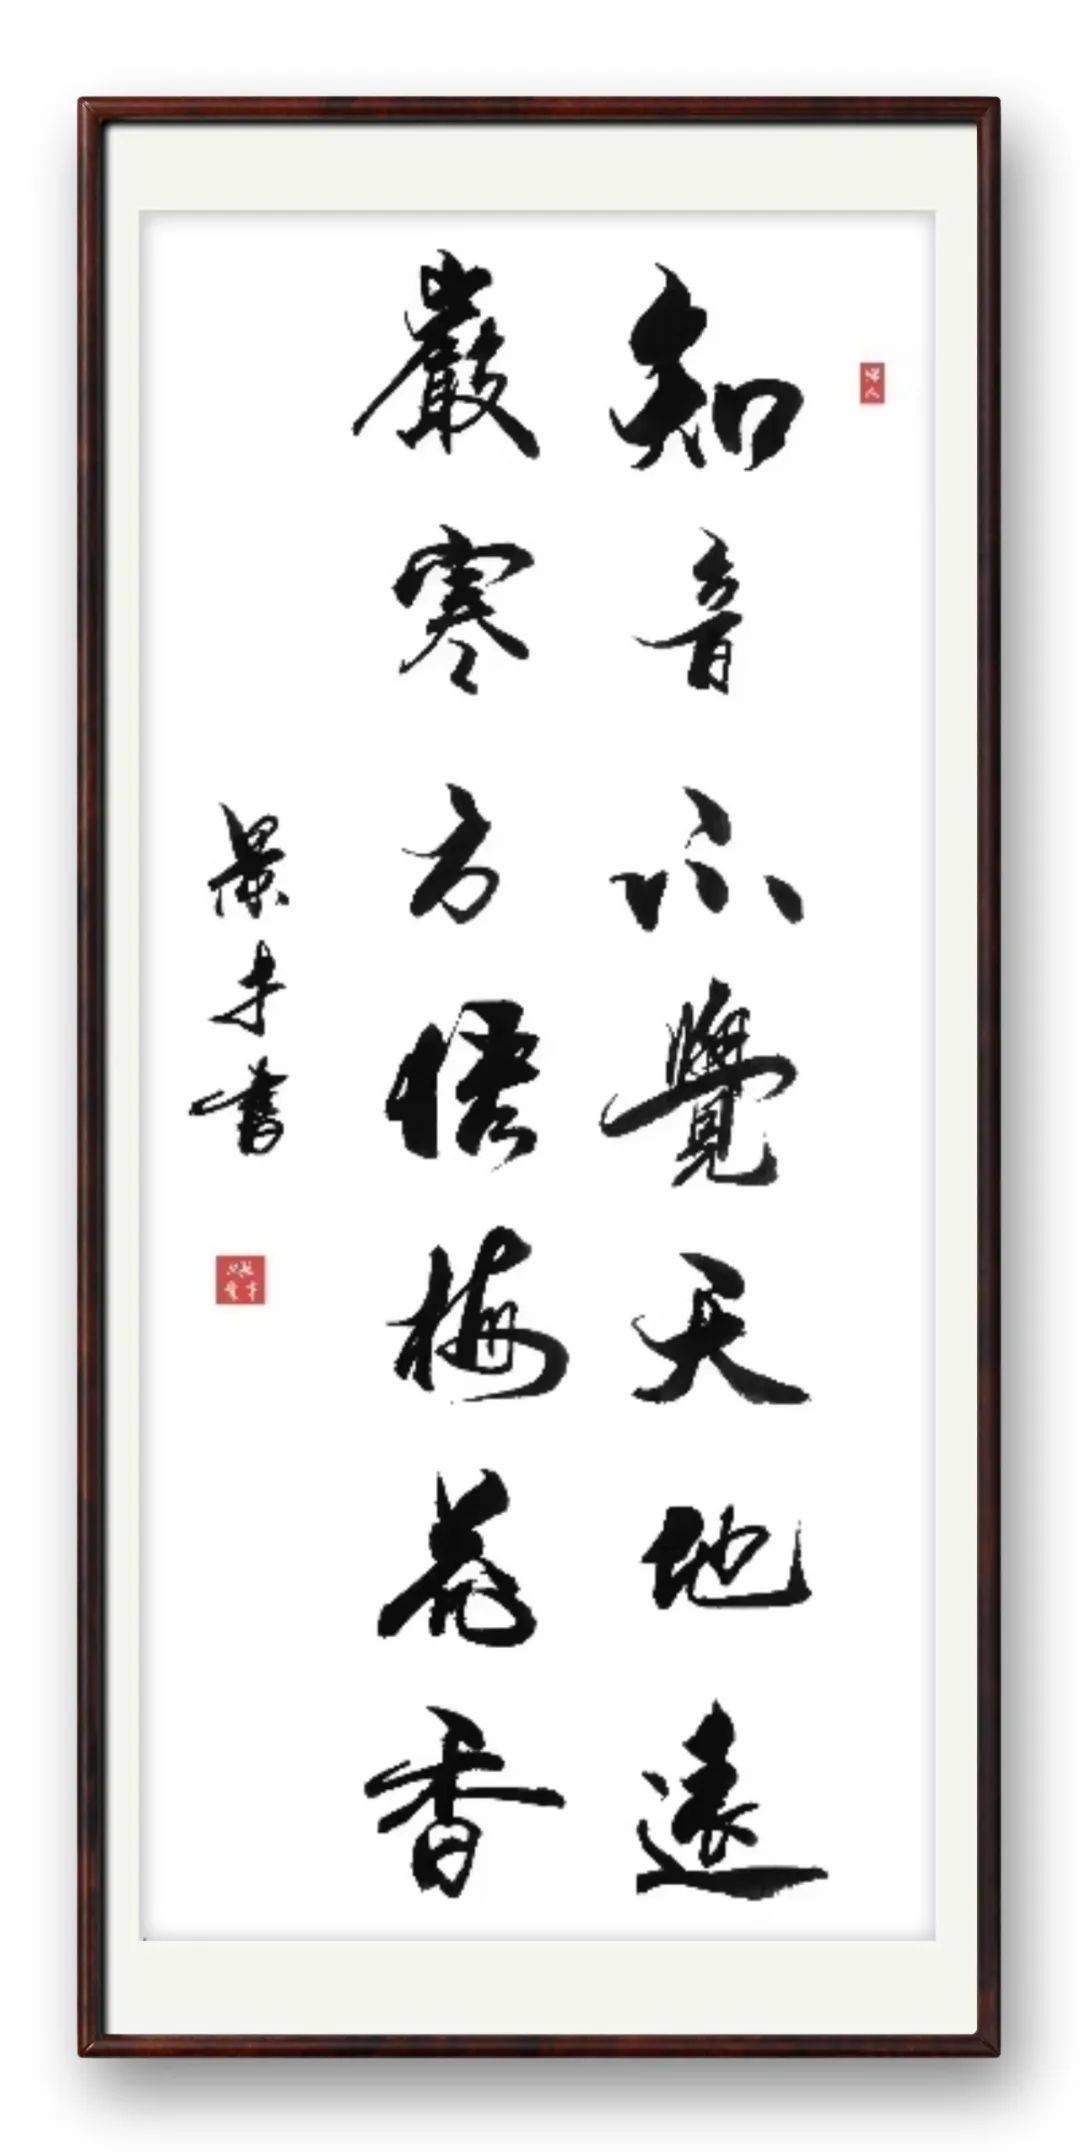 知音不覺天地遠
嚴寒方悟梅花香
景才書